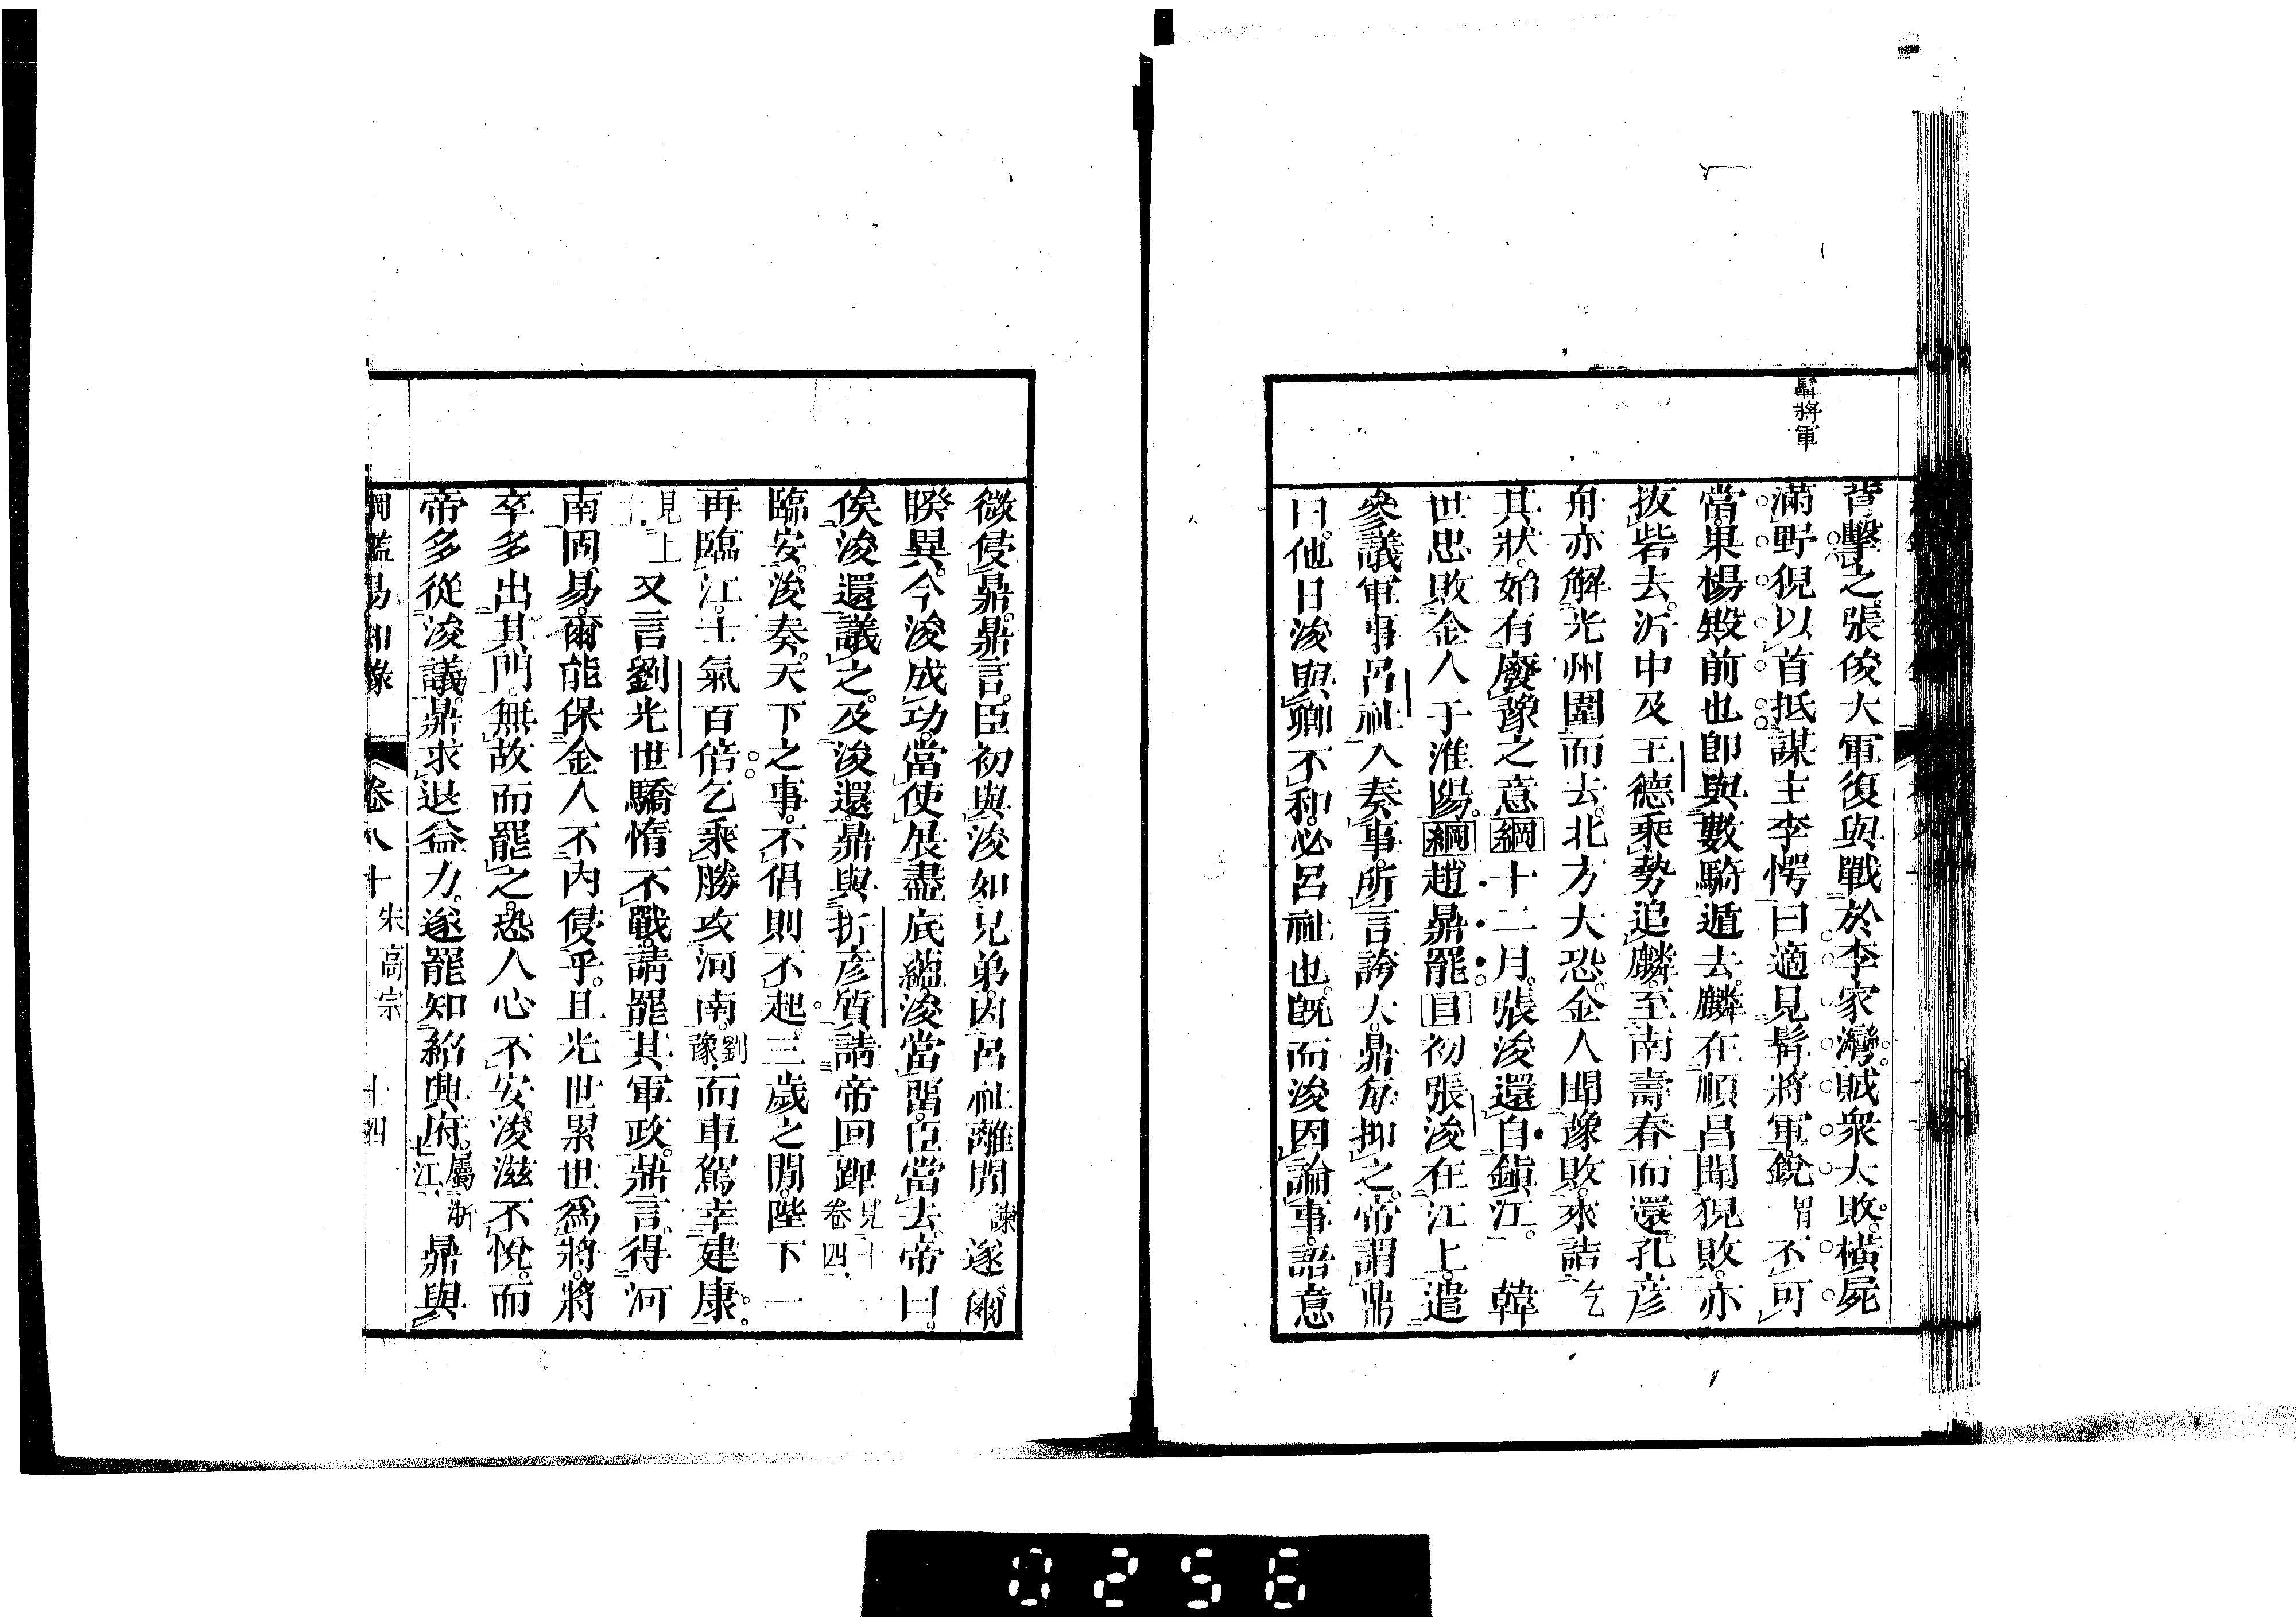 髯將軍
背擊之。張俊大軍復與戰於李家灣。賊衆大敗。橫屍
滿野。猊以首抵謀主李愕曰。適見髯將軍。銳不可
當。果楊殿前也。卽與數騎遁去。麟在順昌。聞猊敗。亦
拔砦去。沂中及王德乘勢追麟。至南壽春而還。孔彥
舟亦解光州圍而去。北方大恐。金人聞豫敗。來詰
其狀。始有廢豫之意 綱 十二月。張浚還自鎭江。 韓
世忠敗金人于淮陽。 綱 趙鼎罷。 目 初張浚在江上。遣
參議軍事呂祉入奏事。所言誇大。鼎每抑之。帝謂鼎
曰。他日浚與卿不和。必呂祉也。旣而浚因論事。語意
微侵鼎。鼎言。臣初與浚如兄弟。因呂祉離閒 諫 遂爾
睽異。今浚成功。當使展盡底蘊。浚當留。臣當去。帝曰。
俟浚還議之。及浚還。鼎與折彥質請帝回蹕 見十卷四
臨安。浚奏。天下之事。不倡則不起。三歲之閒。陛下一
再臨江。士氣百倍。乞乘勝攻河南。劉豫。而車駕幸建康。
見上 又言劉光世驕惰不戰。請罷其軍政。鼎言。得河
南固易。爾能保金人不內侵乎。且光世累世爲將。將
卒多出其門。無故而罷之。恐人心不安。浚滋不悅。而
帝多從浚議。鼎求退益力。遂罷知紹興府。屬浙江 鼎與
綱鑑易知錄 卷八十 宋高宗 十四
0256